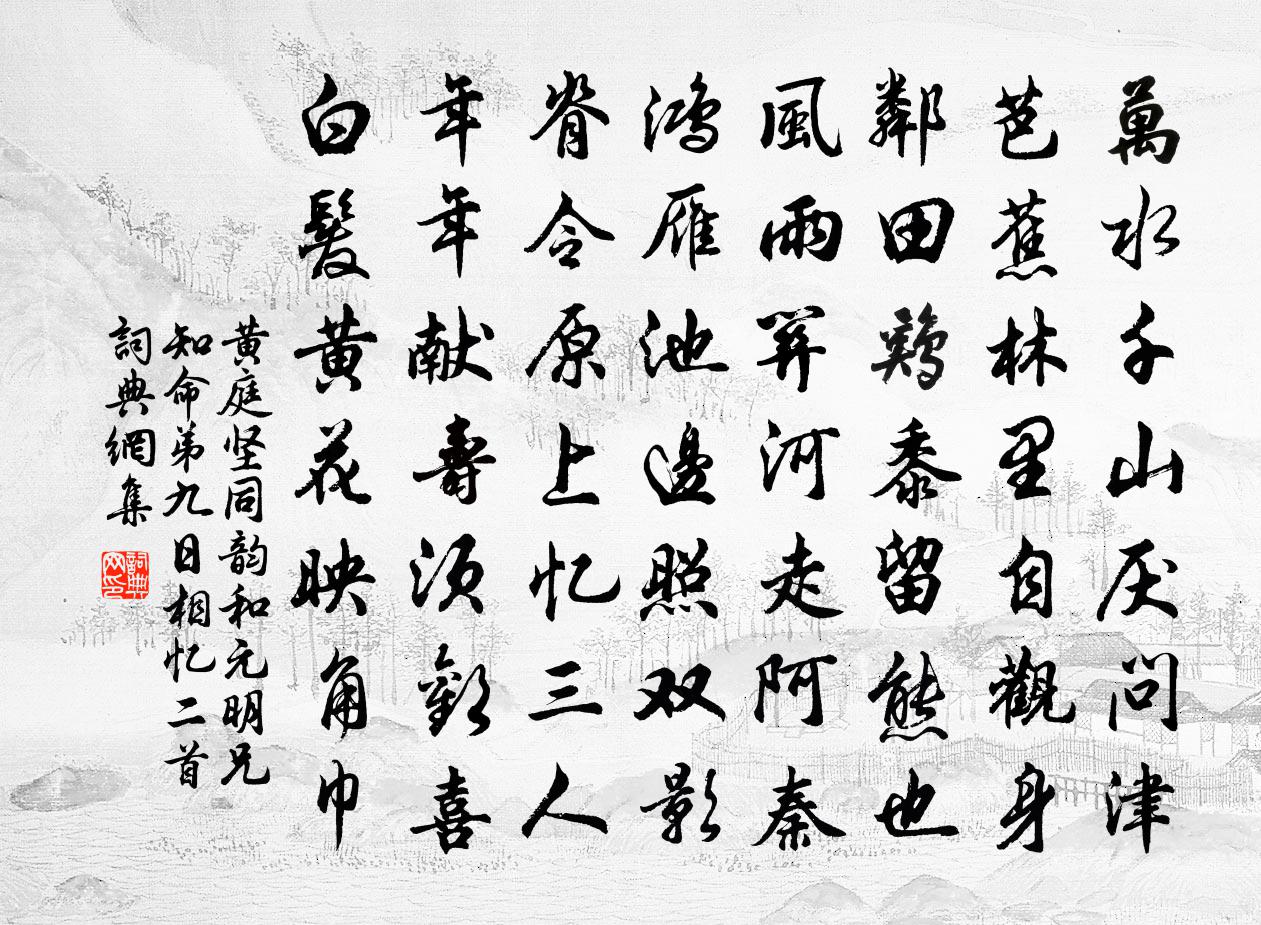 萬水千山厌問津
芭蕉林里自觀身
鄰田鷄黍留熊也
風雨關河走阿秦
鴻雁池邊照双影
脊令原上忆三人
年年献壽須歡喜
白髮黄花映角巾
黄庭坚同韵和元明兄
知命弟九日相忆二首
詞典網集
詞典网印